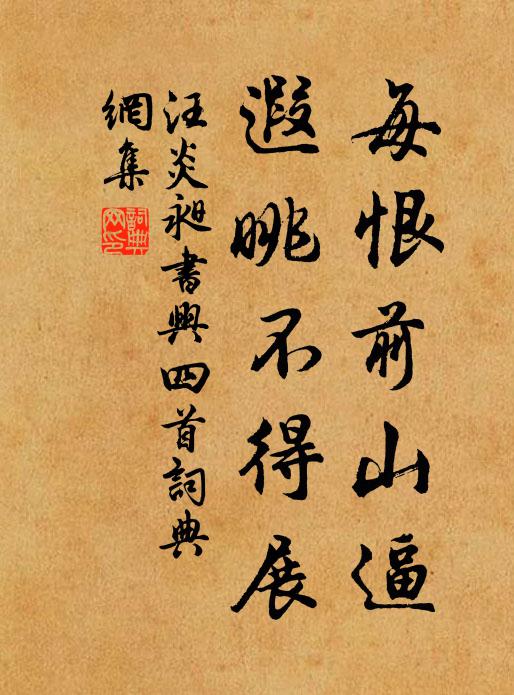 每恨前山逼
遐眺不得展
汪炎昶書興四首詞典
網集
詞典網印